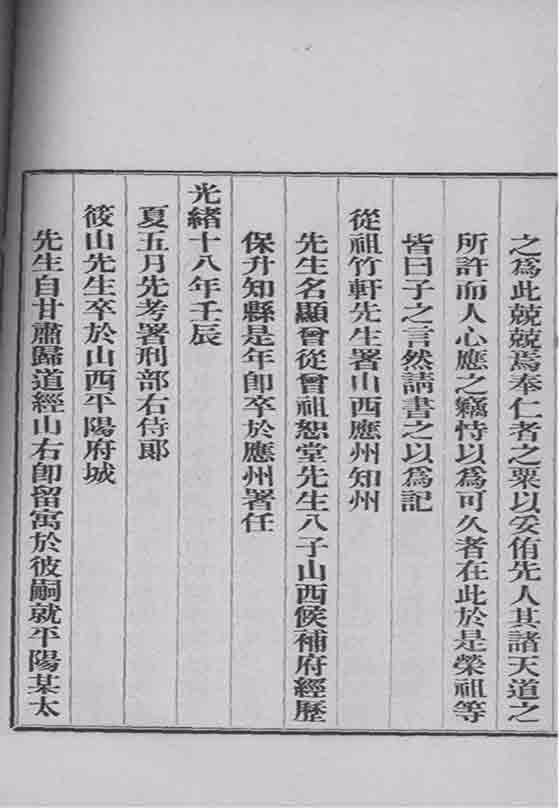 之爲此兢兢焉奉仁者之粟以妥侑先人其諸天道之
所許而人心應之竊恃以爲可久者在此於是榮祖等
皆曰子之言然請書之以爲記
從祖竹軒先生署山西應州知州
先生名顯曾從曾祖恕堂先生八子山西候補府經歷
保升知縣是年卽卒於應州署任
光緒十八年壬辰
夏五月先考署刑部右侍郎
筱山先生卒於山西平陽府城
先生自甘肅歸道經山右卽留寓於彼嗣就平陽某太